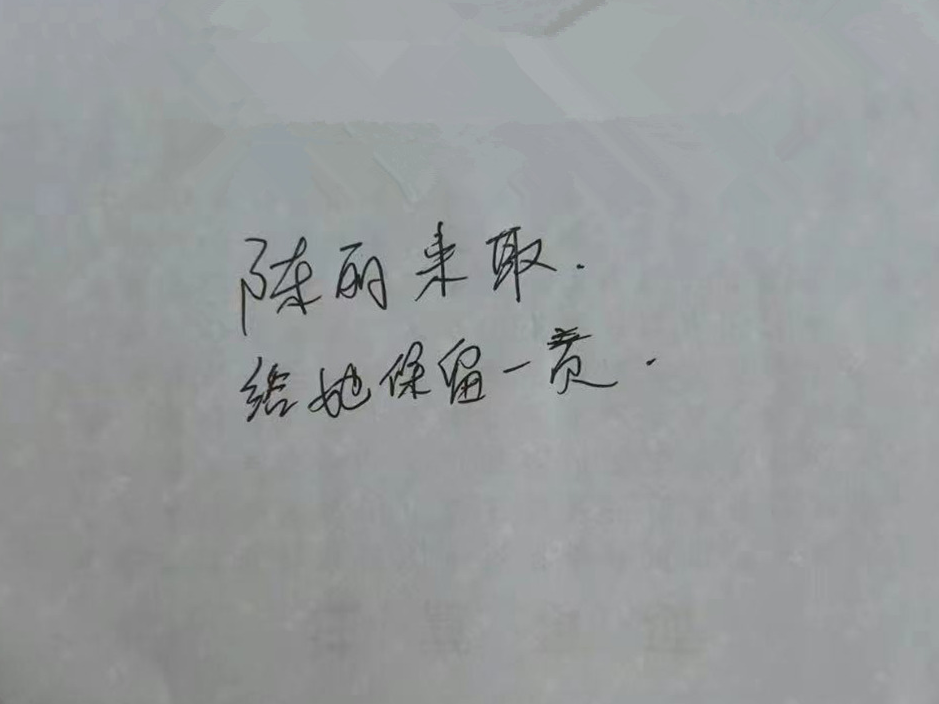 陈丽来取.
给她保留一页.